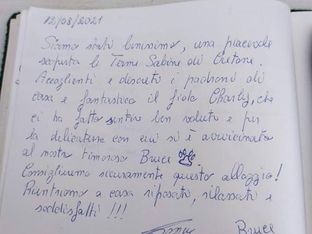 12/08/2021
Siamo stati benissimo, una piacevole
le Terme Sabine di Cretone.
Accoglienti e discreti i padroni di
casa e fantastico il Charly, che
ci ha fatto sentire ben voluti e per
la delicatezza con cui si è avvicinato
al nostro timoroso Bruce
Consigliamo sicuramente questo alloggio!
Rientriamo a casa riposati, rilassati e
soddisfatti !!!
Bruce